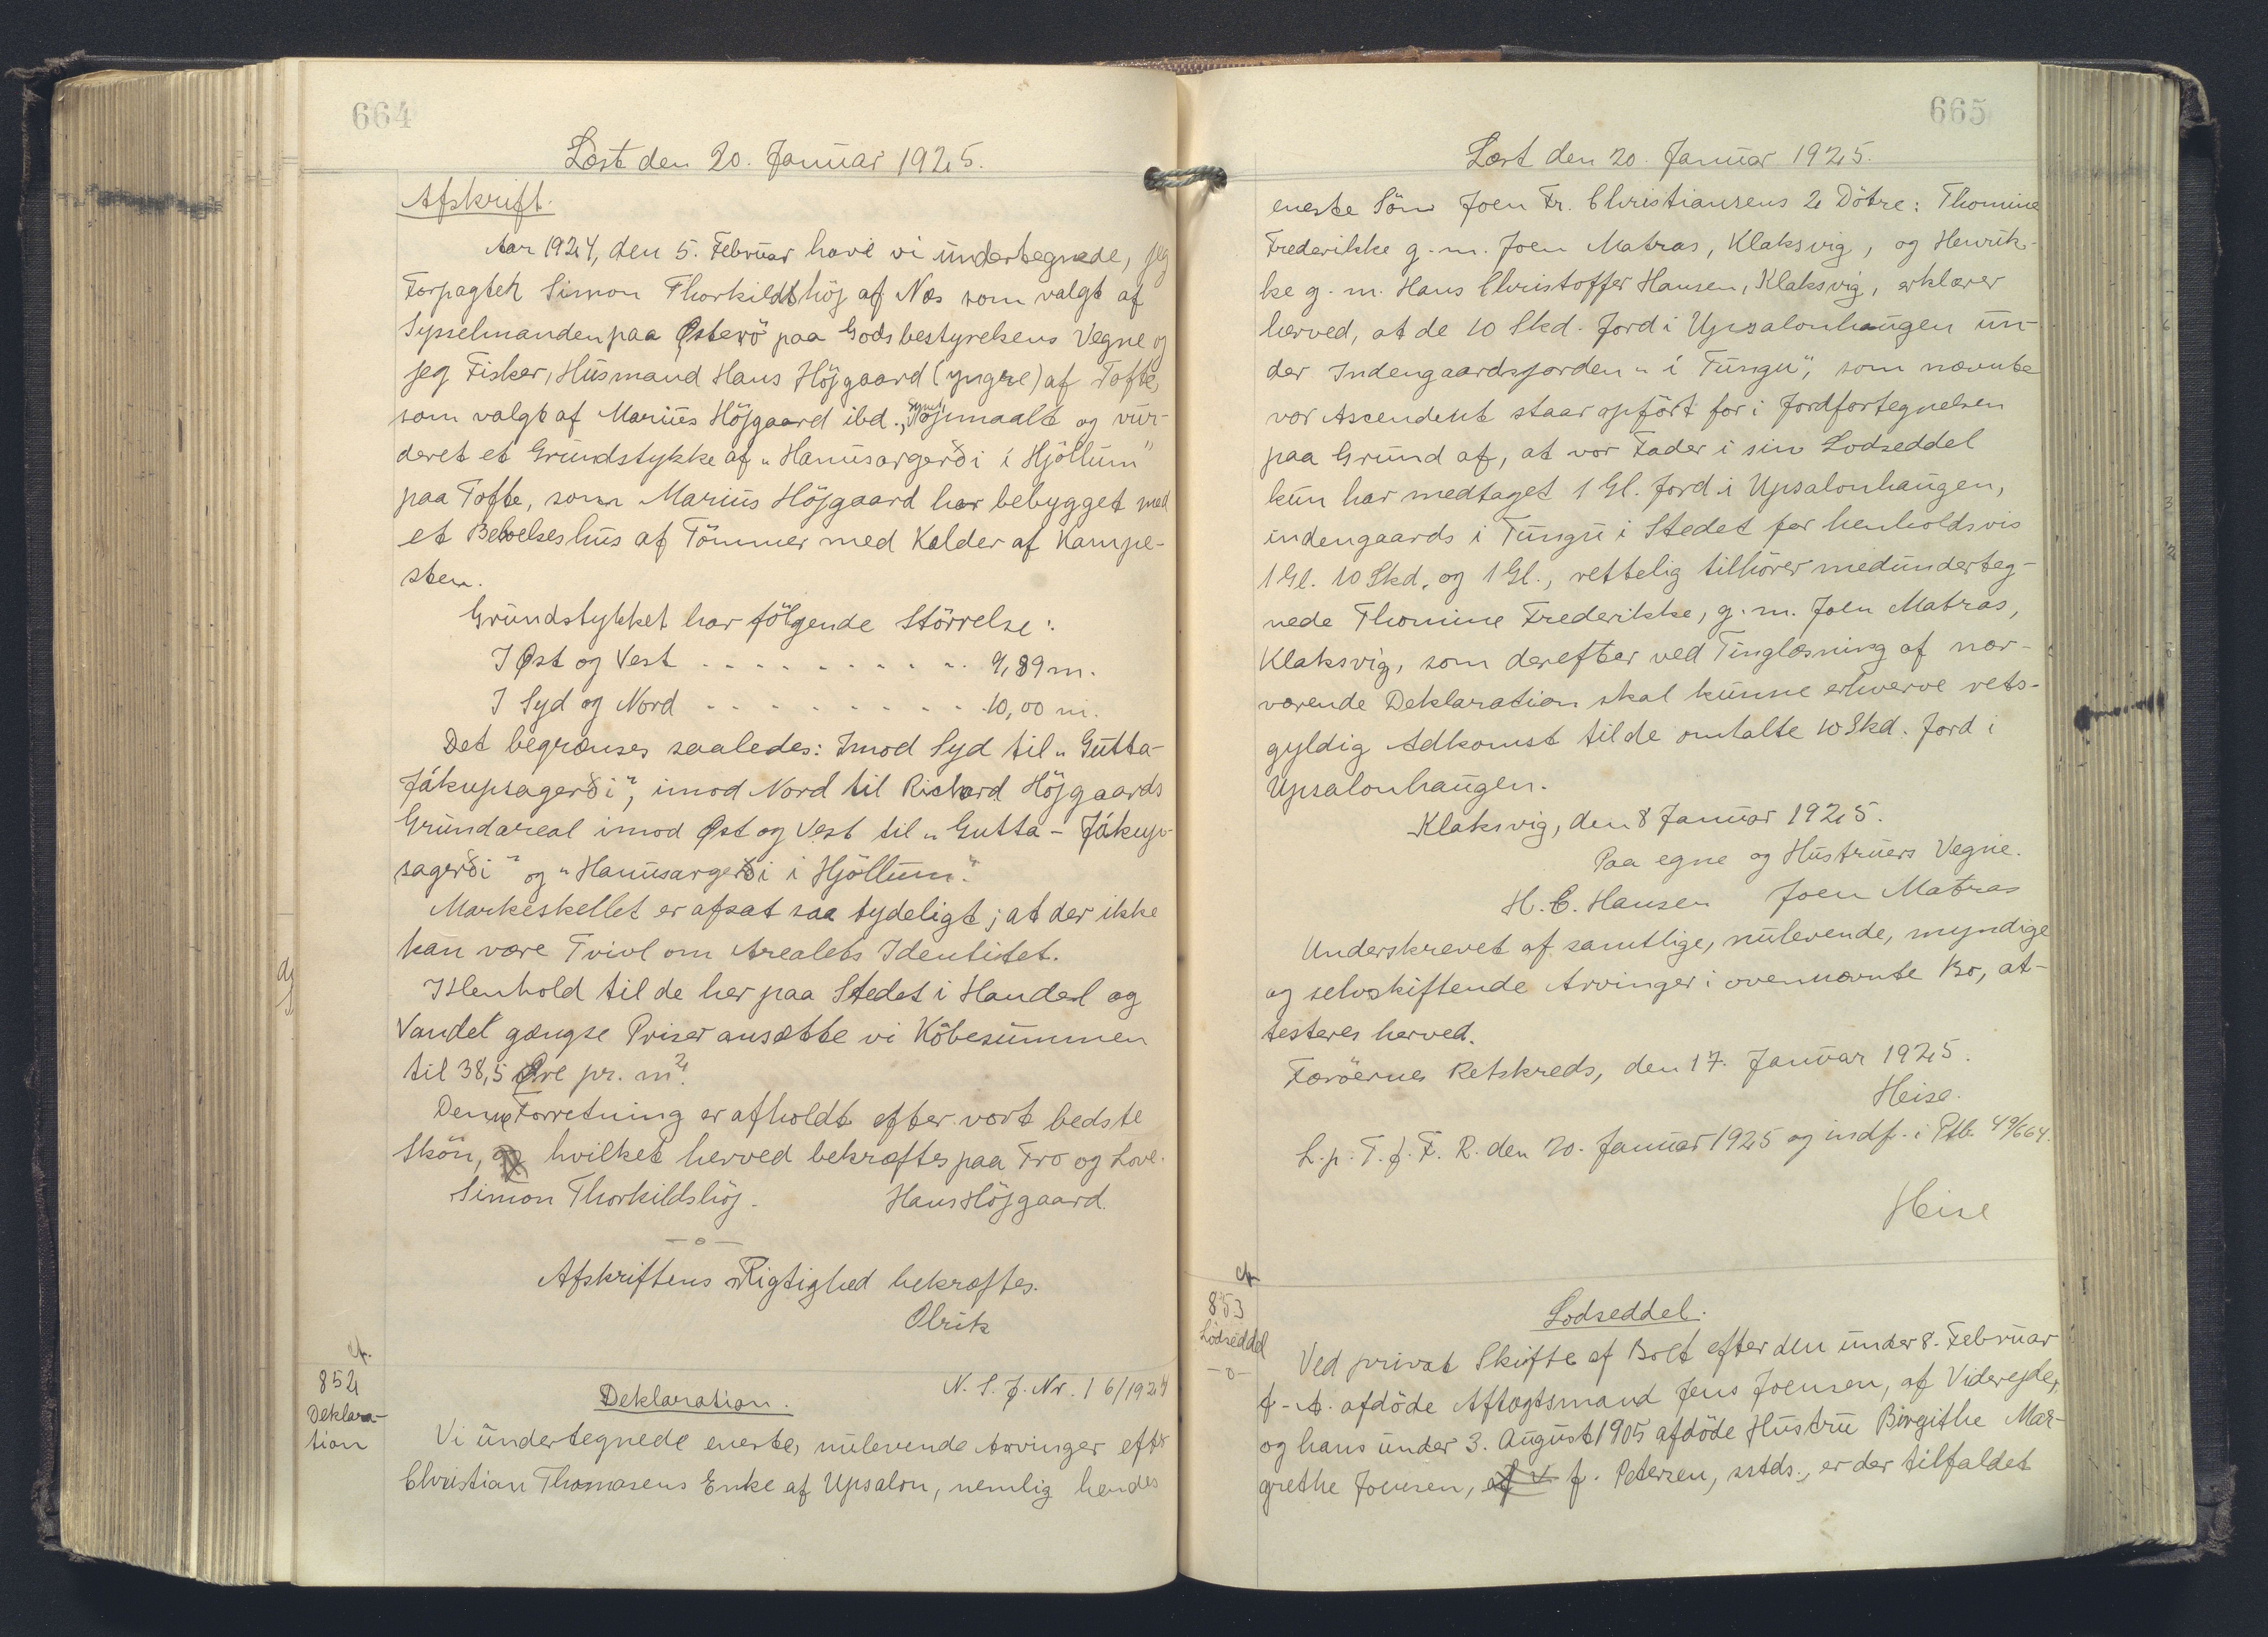 664
Læst den 20. Januar 1925.
Afskrift.
Aar 1924, den 5. Februar have vi undertegnede, jeg
Forpagter Simon Thorkildshöj af Næs som valgt af
Sysselmanden paa Østerö paa Godsbestyrelsens Vegne og
jeg Fisker, Husmand Hans Höjgaard (yngre) af Tofte,
som valgt af Marius Höjgaard ibd., synet opmaalt og vur-
deret et Grundstykke af "Hanusargerði i Hjöllum"
paa Tofte, som Marius Höjgaard har bebygget med
et Beboelseshus af Tömmer med Kælder af Kampe-
sten.
Grundstykket har fölgende Störrelse:
I Øst og Vest . . . . . . . . . . 9,89 m.
I Syd og Nord . . . . . . . . . . 10,00 m.
Det begrænses saaledes: Imod Syd til "Gutta-
Jákupsagerði", imod Nord til Richard Höjgaards
Grundareal imod Øst og Vest til "Gutta - Jákup-
sagerði" og "Hanusargerði i Hjöllum".
Markeskellet er afsat saa tydeligt; at der ikke
kan være Tvivl om Arealets Identitet.
I Henhold til de her paa Stedet i Handel og
Vandel gængse Priser ansætte vi Köbesummen
til 38,5 Øre pr. m².
Denne Forretning er afholdt efter vort bedste
Skön, hvilket herved bekræftes paa Tro og Love.
Simon Thorkildshöj. Hans Höjgaard.
—o—
Afskriftens Rigtighed bekræftes.
Olrik
852
Deklara-
tion
N. S. J. Nr. 16/1924
Deklaration.
Vi undertegnede eneste, nulevende Arvinger eftr
Christian Thomasens Enke af Upsalon, nemlig hendes
665
Læst den 20. Januar 1925.
eneste Sön Joen Fr. Christiansens 2 Dötre: Thomine
Frederikke g. m. Joen Matras, Klaksvig, og Henrik-
ke g. m. Hans Christoffer Hansen, Klaksvig, erklærer
herved, at de 10 Skd. Jord i Upsalonhaugen un-
der Indengaardsjorden "í Tungu", som nævnte
vor Ascendent staar opfört for i Jordfortegnelsen
paa Grund af, at vor Fader i sin Lodseddel
kun har medtaget 1 Gl. Jord i Upsalonhaugen,
indengaards i Tungu i Stedet for henholdsvis
1 Gl. 10 Skd. og 1 Gl., rettelig tilhörer medunderteg-
nede Thomine Frederikke, g. m. Joen Matras,
Klaksvig, som derefter ved Tinglæsning af nær-
værende Deklaration skal kunne erhverve rets-
gyldig Adkomst til de omtalte 10 Skd. Jord i
Upsalonhaugen.
Klaksvig, den 8 Januar 1925.
Paa egne og Hustruers Vegne.
H. C. Hansen Joen Matras
Underskrevet af samtlige, nulevende, myndige
og selvskiftende Arvinger i ovennævnte Bo, at-
testeres herved.
Færöernes Retskreds, den 17. Januar 1925.
Heise.
L. p. T. f. F. R. den 20. Januar 1925 og indf. i Ptb. 49/664.
Heise
853
Lodseddel
—o—
Lodseddel.
Ved privat Skifte af Boet efter den under 8. Februar
f. A. afdöde Aftægtsmand Jens Joensen, af Viderejde,
og hans under 3. August 1905 afdöde Hustru Birgithe Mar-
grethe Joensen, f. Petersen, sstds., er der tilfaldet